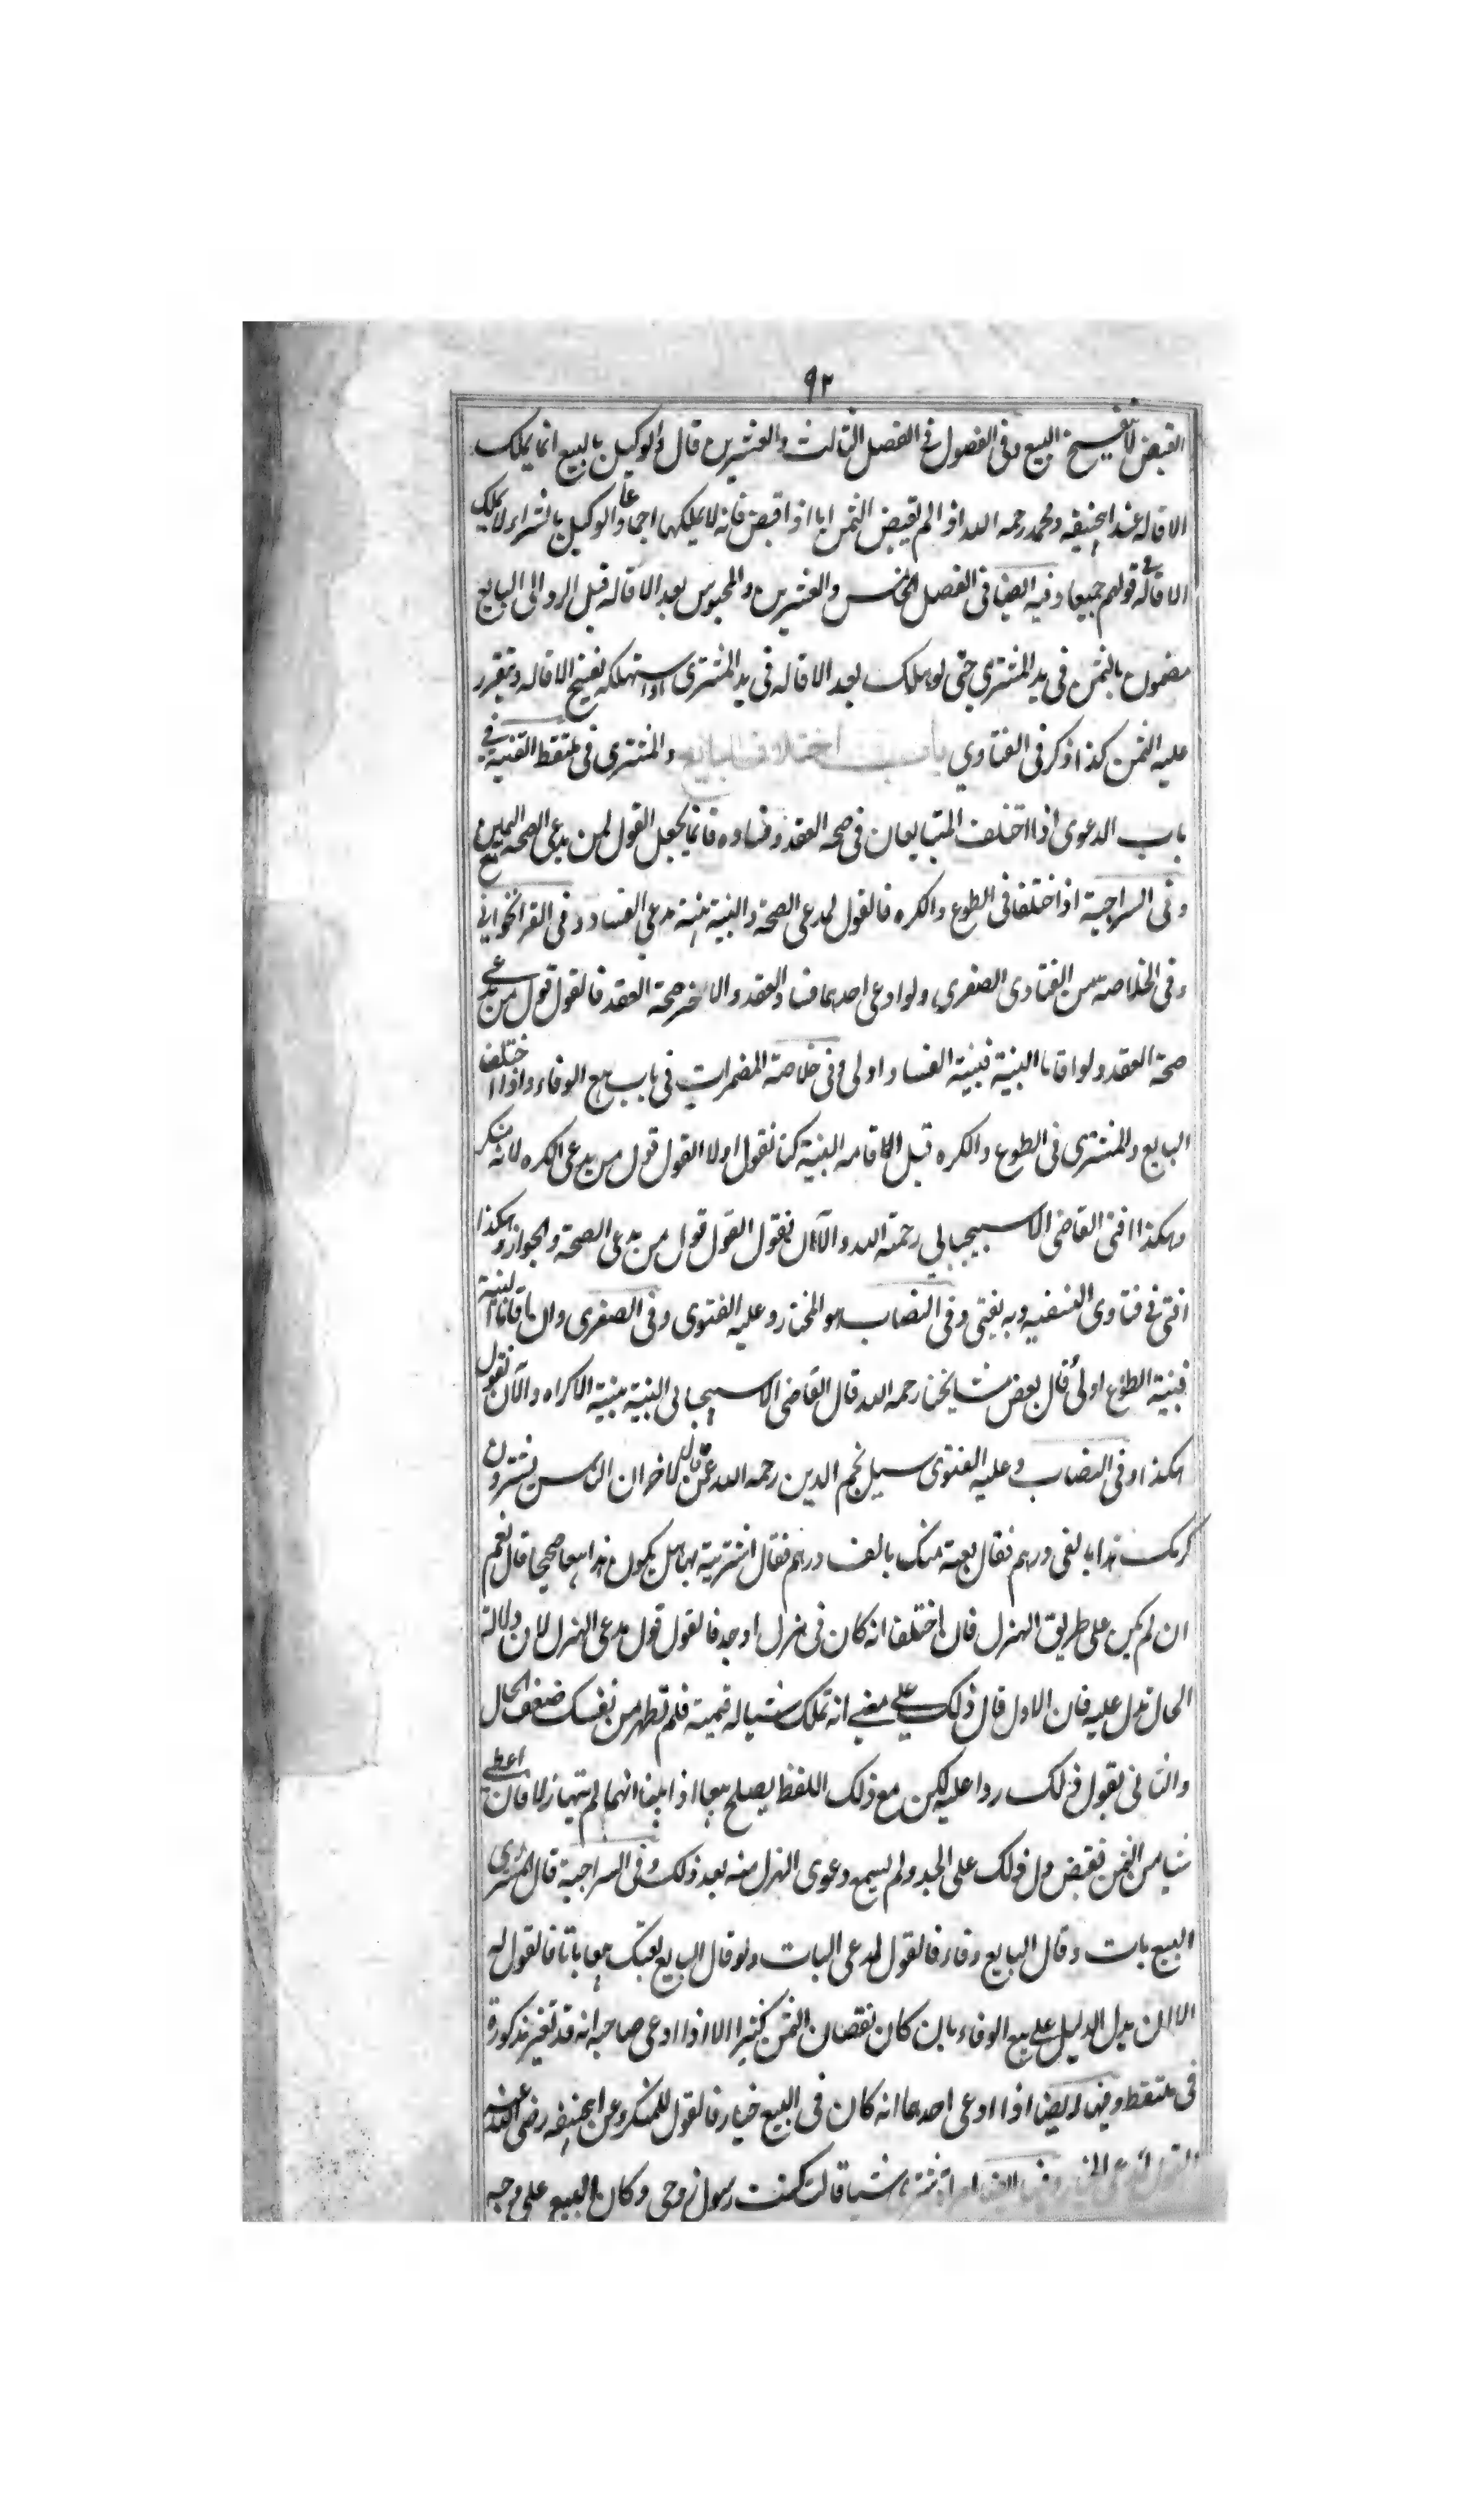 ٩٢
القبض لا ينفسخ البيع وفى الفصول فى الفصل الثالث والعشرين قال والوكيل بالبيع انما يملك
الاقاله عند ابيحنيفه ومحمد رحمه الله اذا لم يقبض الثمن اما اذا قبض فانه لا يملكها اجماعا والوكيل بالشراء لا يملك
الاقالة فى قولهم جميعا وفيه ايضا فى الفصل الخامس والعشرين والمحبوس بعد الاقاله قبل الرد الى البايع
مضمون بالثمن فى يد المشتري حتى لو هلك بعد الاقاله فى يد المشترى او استهلكه تفسخ الاقاله ويتقرر
عليه الثمن كذا ذكر فى الفتاوي باب اختلاف البايع والمشترى فى ملتقط القنية فى
باب الدعوى اذا اختلف المتبايعان فى صحة العقد وفساده فانما يجعل القول لمن يدعى الصحة مع اليمين
وفى السراجية اذا اختلفا فى الطوع والكره فالقول لمدعى الصحة والبينة بينة مدعي الفساد وفى القراخوانى
وفى الخلاصة من الفتاوى الصغرى ولو ادعى احدهما فساد العقد والاخر صحة العقد فالقول قول من يدعى
صحة العقد ولو اقاما البينة فبينة الفساد اولى وفى خلاصة المضمرات فى باب بيع الوفاء واذا اختلف
البايع والمشترى فى الطوع والكره قبل اقامه البينة كنا نقول اولا القول قول من يدعى الكره لانه منكر
وهكذا افتى القاضى الاسبيجابي رحمة الله والآن نقول القول قول من يدعى الصحة والجواز وهكذا
افتى فى فتاوى النسفيه وبه يفتى وفى النصاب هو المختار وعليه الفتوى وفى الصغرى وان اقاما البينة
فبينة الطوع اولى قال بعض مشايخنا رحمه الله قال القاضى الاسبيجابى البينة بينة الاكراه والآن نقول
هكذا وفى النصاب وعليه الفتوى سيل نجم الدين رحمه الله عمن قال لاخر ان الناس يشترون
كرمك هذا بالفى درهم فقال بعته منك بالف درهم فقال اشتريته بها هل يكون هذا بيعا صحيحا قال نعم
ان لم يكن على طريق الهزل فان اختلفا انه كان فى هزل او جد فالقول قول مدعى الهزل لان دلالة
الحال تدل عليه فان الاول قال ذلك على معنى انه تملك شيا له قيمة فلم تظهر من نفسك ضعف الحال
والثانى يقول ذلك ردا عليه لكن مع ذلك اللفظ يصلح بيعا اذا انهما لم يتهازلا فان اعطى
شيا من الثمن فقبض دل ذلك على الجد ولم يسمع دعوى الهزل منه بعد ذلك وفى السراجية قال المشترى
البيع بات وقال البايع وفاء فالقول لمدعى البات ولو قال البايع بعتك بيعا باتا فالقول له
الا ان يدل الدليل على بيع الوفاء بان كان نقصان الثمن كثيرا الا اذا ادعى صاحبه انه قد تغير مذكورة
فى ملتقط وفيها ايضا اذا ادعى احدهما انه كان فى البيع خيار فالقول للمنكر وعن ابيحنيفه رضى الله عنه
القول لمدعى الخيار وفيها ايضا امرأة اشترت شيا قالت كنت رسول زوجى وكان البيع على وجه